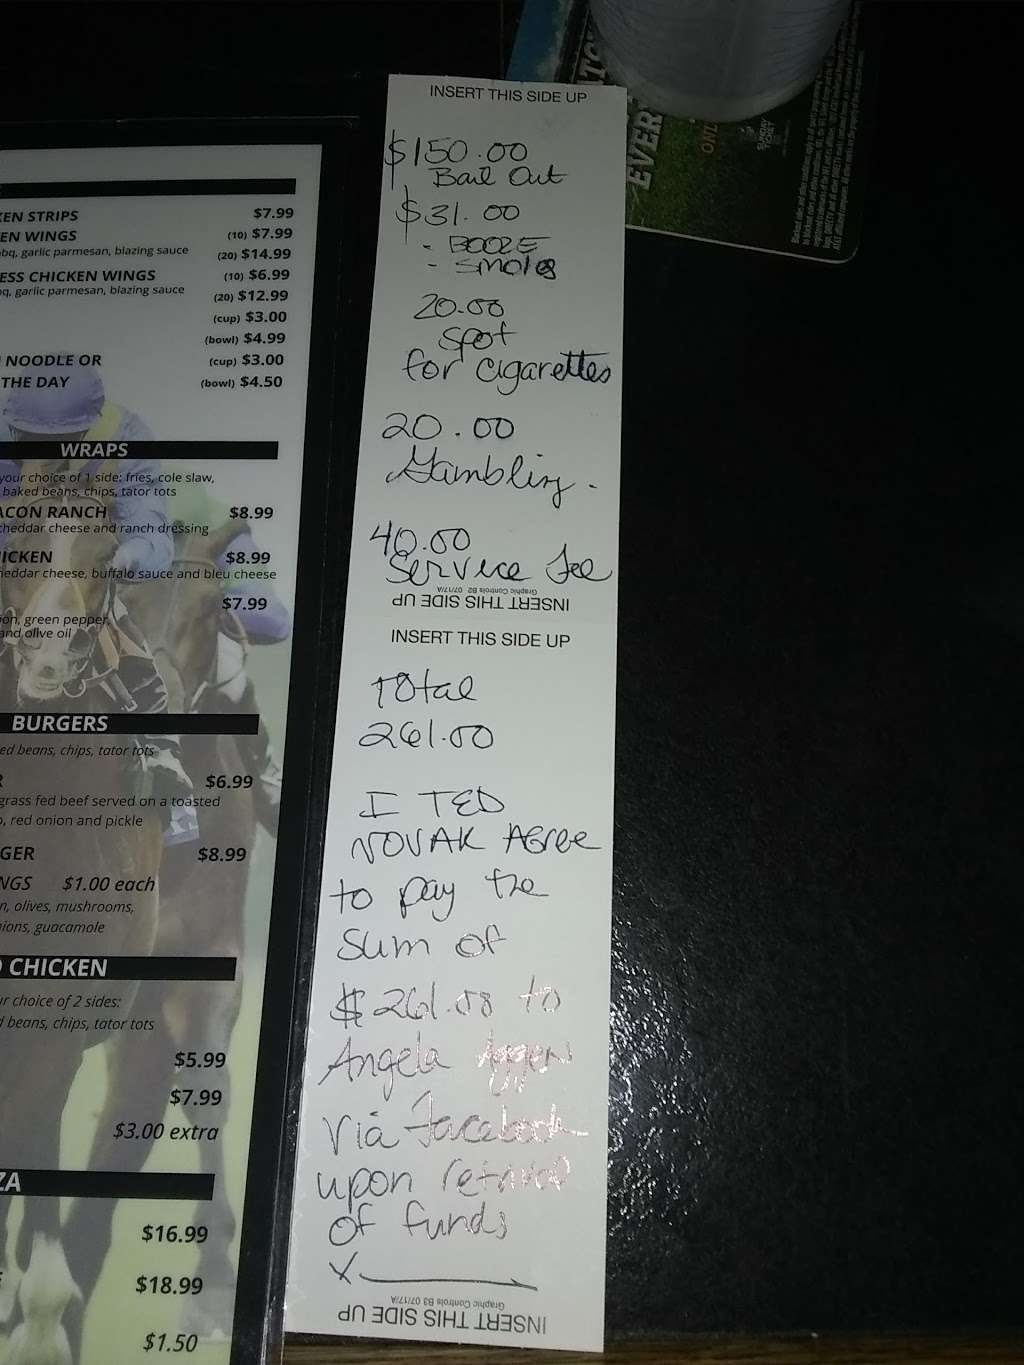 INSERT THIS SIDE UP
$150.00
Bail Out
$31.00
- BOOZE
- smokes
20.00
spot
for cigarettes
20.00
Gambling.
40.00
Service Fee
Graphic Controls B2 07/17/A
INSERT THIS SIDE UP
INSERT THIS SIDE UP
Total
261.00
I TED
NOVAK Agree
to pay the
sum of
$261.00 to
Angela Aggen
via Facebook
upon retrival
of funds
X
Graphic Controls B3 07/17/A
INSERT THIS SIDE UP
KEN STRIPS $7.99
EN WINGS (10) $7.99
bbq, garlic parmesan, blazing sauce (20) $14.99
ESS CHICKEN WINGS (10) $6.99
q, garlic parmesan, blazing sauce (20) $12.99
(cup) $3.00
(bowl) $4.99
NOODLE OR (cup) $3.00
THE DAY (bowl) $4.50
WRAPS
your choice of 1 side: fries, cole slaw,
baked beans, chips, tator tots
ACON RANCH $8.99
cheddar cheese and ranch dressing
ICKEN $8.99
heddar cheese, buffalo sauce and bleu cheese
$7.99
on, green pepper,
and olive oil
BURGERS
ed beans, chips, tator tots
R $6.99
grass fed beef served on a toasted
o, red onion and pickle
GER $8.99
NGS $1.00 each
n, olives, mushrooms,
ions, guacamole
CHICKEN
ur choice of 2 sides:
d beans, chips, tator tots
$5.99
$7.99
$3.00 extra
ZA
$16.99
$18.99
$1.50
EVERY
ONL
SUNDAY
TICKET